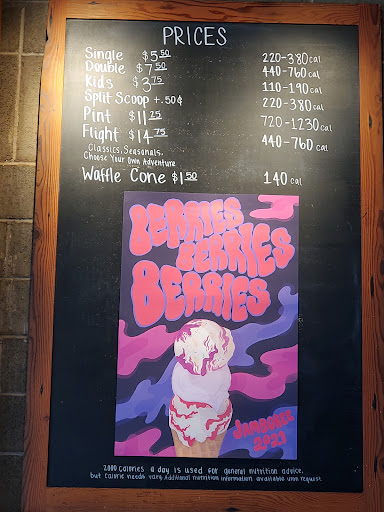 PRICES
Single $5.50 220-380 cal
Double $7.50 440-760 cal
Kids $3.75 110-190 cal
Split Scoop +.50¢ 220-380 cal
Pint $11.25 720-1230 cal
Flight $14.75 440-760 cal
Classics, Seasonals,
Choose Your Own Adventure
Waffle Cone $1.50 140 cal
BERRIES
BERRIES
BERRIES
JAMBOREE
2023
2000 calories a day is used for general nutrition advice,
but calorie needs vary. Additional nutrition information available upon request.